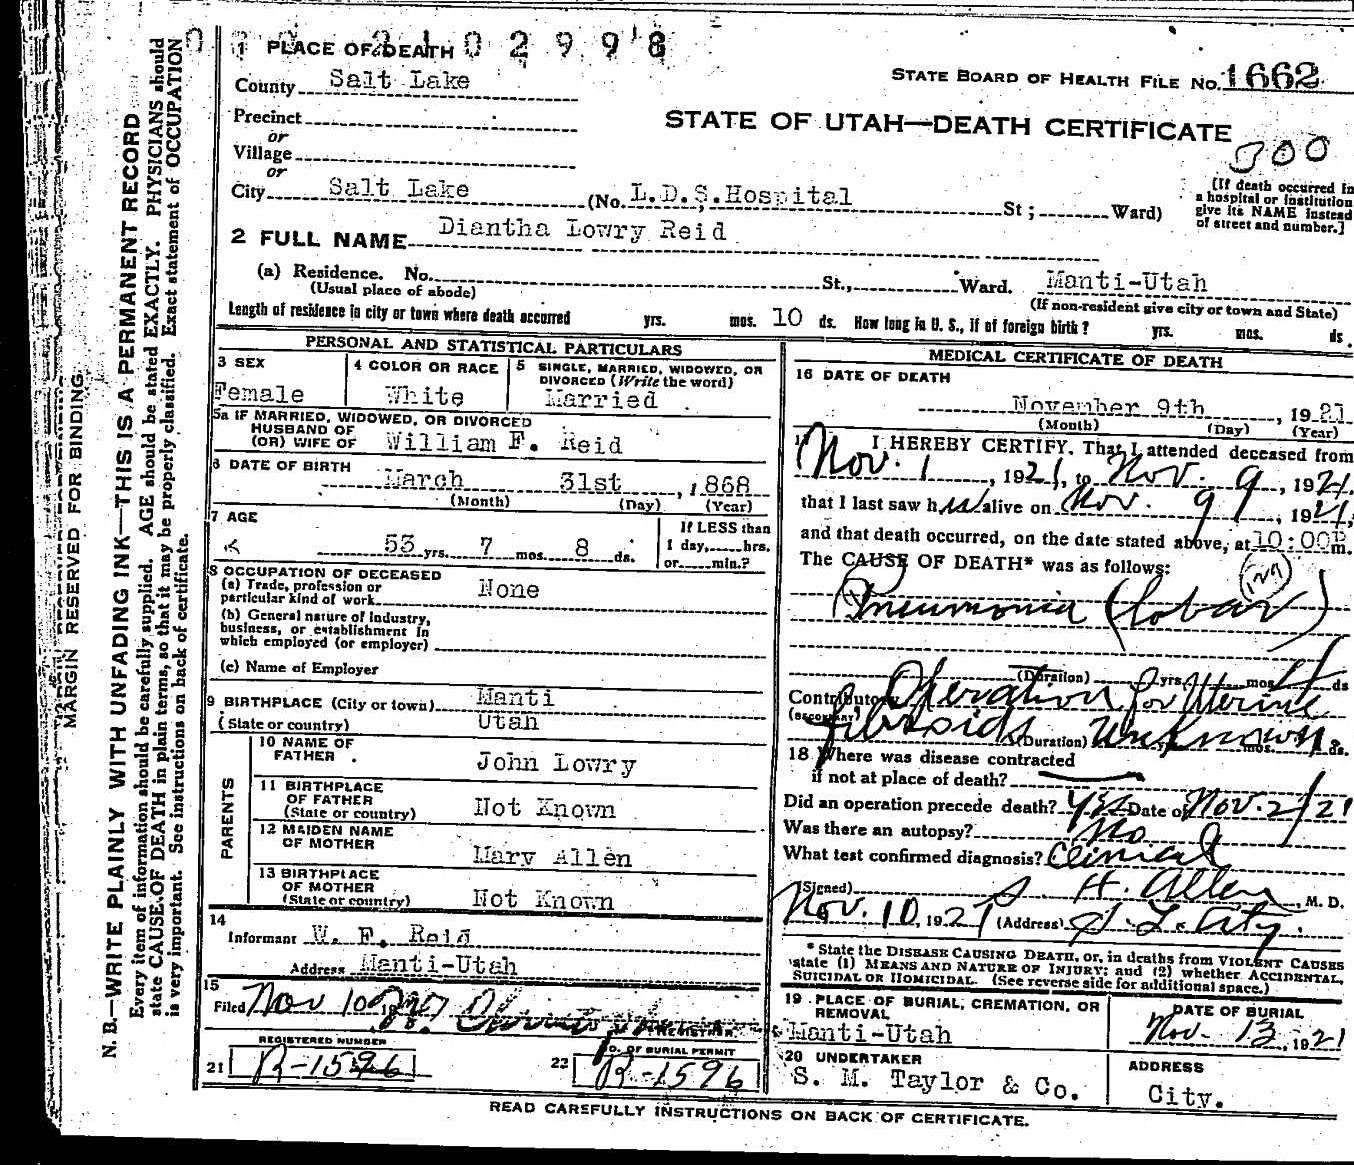 2102998
1 PLACE OF DEATH
STATE BOARD OF HEALTH FILE NO. 1662
County Salt Lake
STATE OF UTAH—DEATH CERTIFICATE
Precinct
300
or
Village
or
City Salt Lake (No. L.D.S. Hospital St ; Ward)
[If death occurred in
a hospital or institution
give its NAME instead
of street and number.]
2 FULL NAME Diantha Lowry Reid
(a) Residence. No. St., Ward. Manti-Utah
(Usual place of abode) (If non-resident give city or town and State)
Length of residence in city or town where death occurred yrs. mos. 10 ds. How long in U. S., if of foreign birth? yrs. mos. ds.
PERSONAL AND STATISTICAL PARTICULARS
3 SEX
Female
4 COLOR OR RACE
White
5 SINGLE, MARRIED, WIDOWED, OR
DIVORCED (Write the word)
Married
5a IF MARRIED, WIDOWED, OR DIVORCED
HUSBAND OF
(OR) WIFE OF William F. Reid
6 DATE OF BIRTH
March 31st, 1868
(Month) (Day) (Year)
7 AGE
53 yrs. 7 mos. 8 ds.
If LESS than
1 day, hrs.
or min.?
8 OCCUPATION OF DECEASED
(a) Trade, profession or
particular kind of work None
(b) General nature of industry,
business, or establishment in
which employed (or employer)
(c) Name of Employer
9 BIRTHPLACE (City or town) Manti
(State or country) Utah
PARENTS
10 NAME OF
FATHER John Lowry
11 BIRTHPLACE
OF FATHER
(State or country) Not Known
12 MAIDEN NAME
OF MOTHER Mary Allen
13 BIRTHPLACE
OF MOTHER
(State or country) Not Known
14
Informant W. F. Reid
Address Manti-Utah
15
Filed Nov 10
REGISTRAR
REGISTERED NUMBER
21 R-1596
NO. OF BURIAL PERMIT
22 R-1596
MEDICAL CERTIFICATE OF DEATH
16 DATE OF DEATH
November 9th, 1921
(Month) (Day) (Year)
17 I HEREBY CERTIFY, That I attended deceased from
Nov. 1, 1921, to Nov. 9, 1921.
that I last saw her alive on Nov. 9, 1921,
and that death occurred, on the date stated above, at 10:00P m.
The CAUSE OF DEATH* was as follows:
Pneumonia (Lobar)
(Duration) yrs. mos. ds
Contributory Operation for Uterine
(SECONDARY) fibroids
(Duration) Unknown mos. ds.
18 Where was disease contracted
if not at place of death?
Did an operation precede death? Yes Date of Nov. 2/21
Was there an autopsy? No
What test confirmed diagnosis? Clinical
(Signed) S. H. Allen, M. D.
Nov. 10, 1921 (Address) S. L. City.
* State the DISEASE CAUSING DEATH, or, in deaths from VIOLENT CAUSES
state (1) MEANS AND NATURE OF INJURY; and (2) whether ACCIDENTAL,
SUICIDAL OR HOMICIDAL. (See reverse side for additional space.)
19 PLACE OF BURIAL, CREMATION, OR
REMOVAL
Manti-Utah
DATE OF BURIAL
Nov. 13, 1921
20 UNDERTAKER
S. M. Taylor & Co.
ADDRESS
City.
READ CAREFULLY INSTRUCTIONS ON BACK OF CERTIFICATE.
MARGIN RESERVED FOR BINDING
N. B.—WRITE PLAINLY WITH UNFADING INK—THIS IS A PERMANENT RECORD
Every item of information should be carefully supplied. AGE should be stated EXACTLY. PHYSICIANS should
state CAUSE OF DEATH in plain terms, so that it may be properly classified. Exact statement of OCCUPATION
is very important. See instructions on back of certificate.